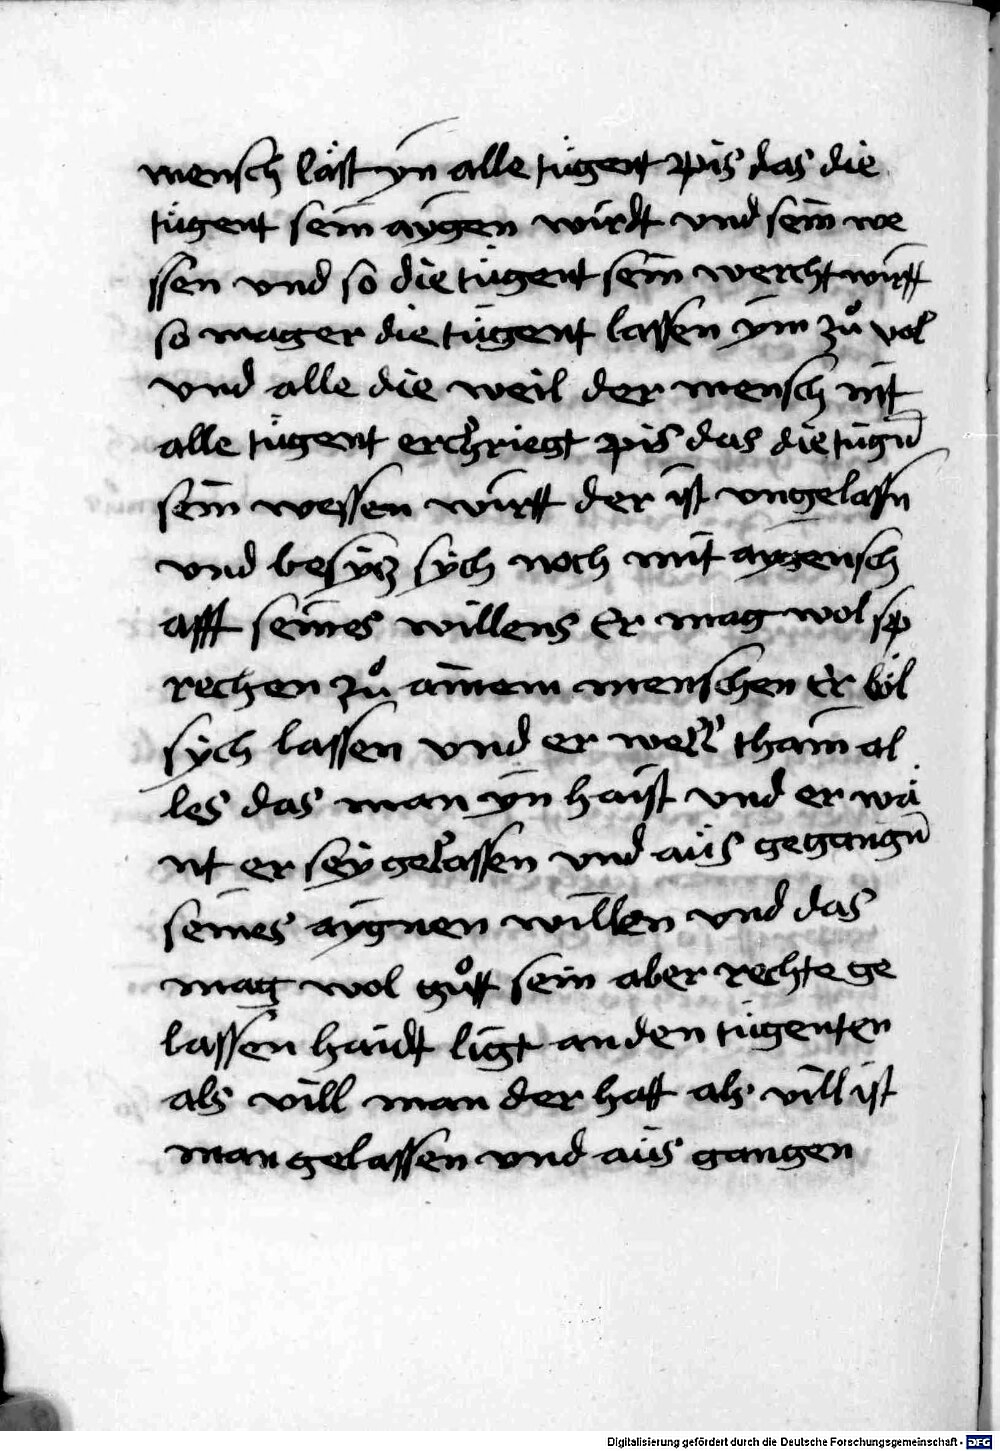 mensch läst yn alle tügent pis das die
tügent sein aygen wirdt und sein we
ssen und so die tügent sein wercht wirtt
so mag er die tügent lassen ym zů vol
und alle die weil der mensch nit
alle tügent erchriegt pis das die tügn̄
sein wessen wirtt der ist ungelassn
und besycz sych noch mit aygensch
afft seines willens Er mag wol sp
rechen zů ainem menschen Er
sych lassen und er well thain al
les das man yn haist und er wä
nt er sey gelassen und aüs gegangn̄
seines aygnen willen und das
mag wol gůtt sein aber rechte ge
lassen haidt ligt an den tügenten
als vill man der hatt als vill ist
man gelassen und aüs gangen
Digitalisierung gefördert durch die Deutsche Forschungsgemeinschaft - DFG